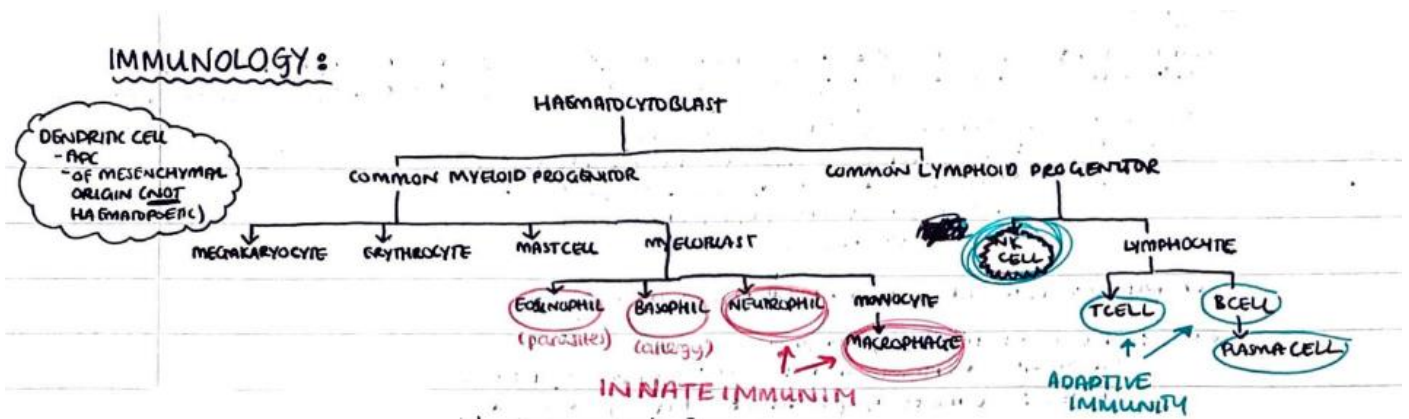 IMMUNOLOGY:
HAEMATOCYTOBLAST
DENDRITIC CELL
- APC
- OF MESENCHYMAL
ORIGIN (NOT
HAEMATOPOETIC)
COMMON MYELOID PROGENITOR
COMMON LYMPHOID PROGENITOR
MEGAKARYOCYTE
ERYTHROCYTE
MAST CELL
MYELOBLAST
NK
CELL
LYMPHOCYTE
EOSINOPHIL
(parasites)
BASOPHIL
(allergy)
NEUTROPHIL
MONOCYTE
MACROPHAGE
T CELL
B CELL
PLASMA CELL
INNATE IMMUNITY
ADAPTIVE
IMMUNITY